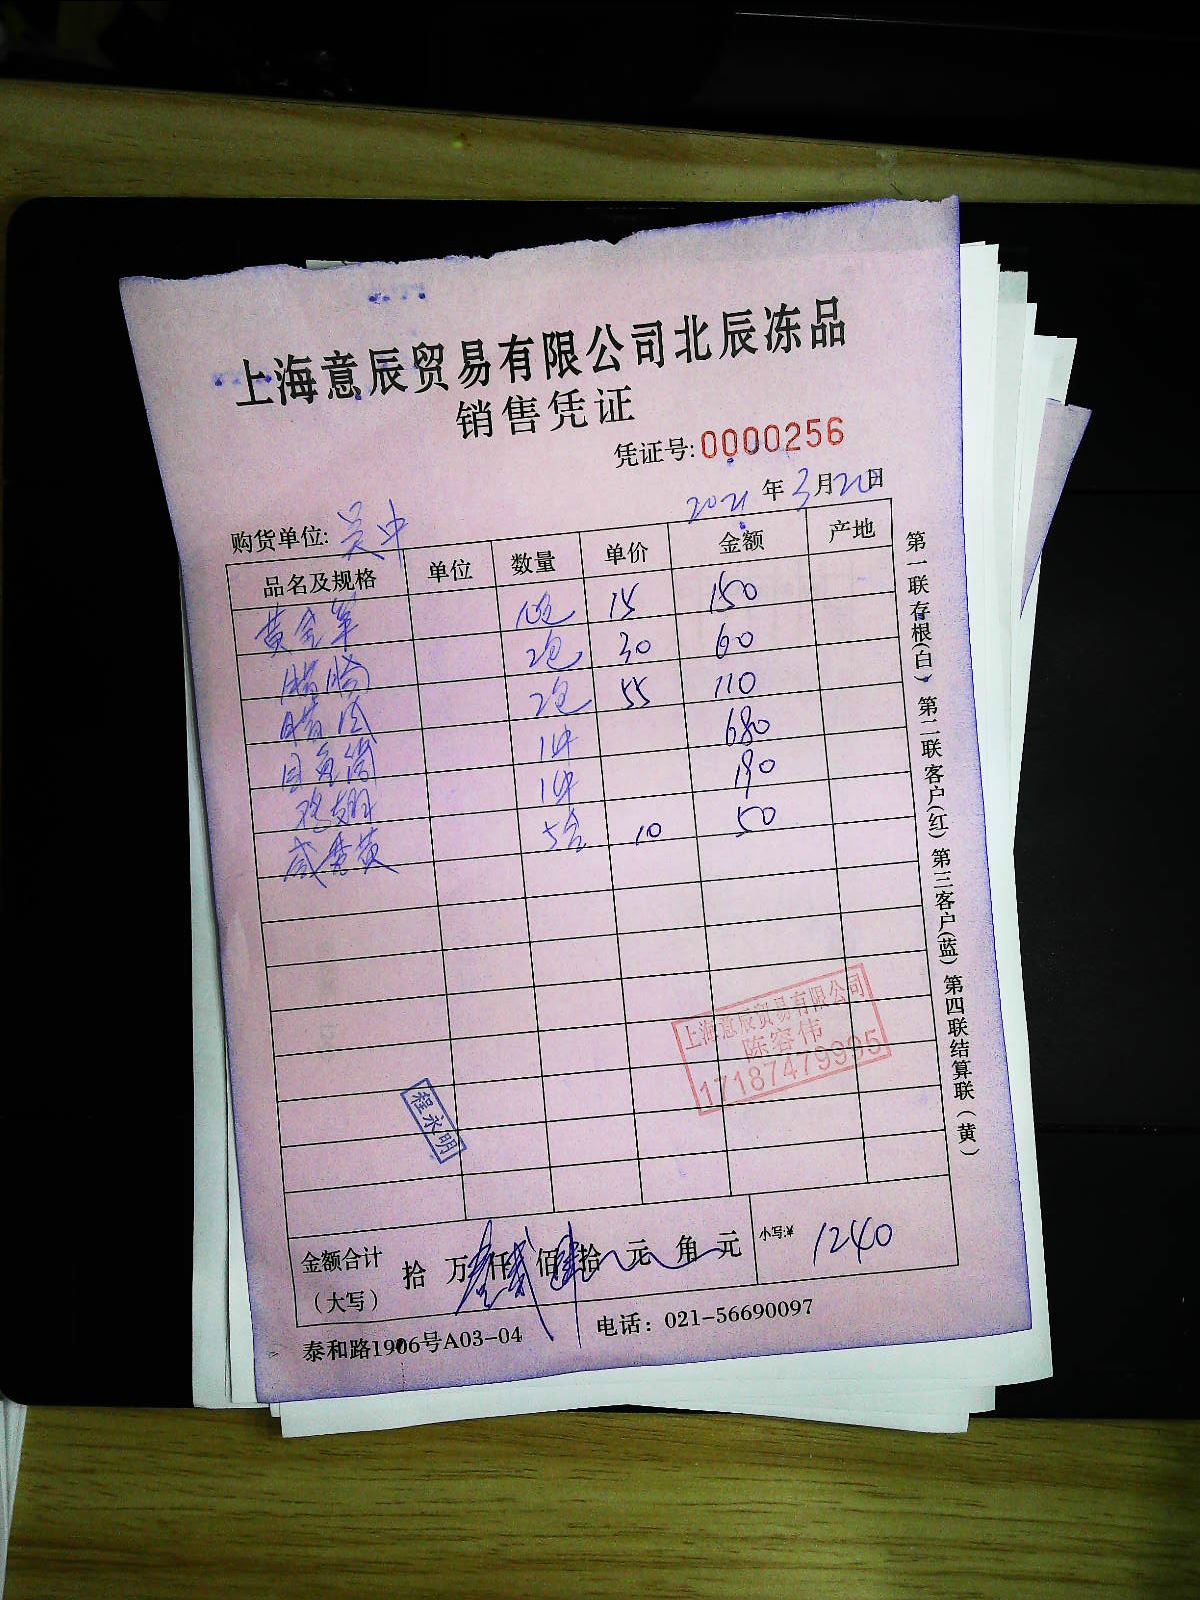 上海意辰贸易有限公司北辰冻品
销售凭证
凭证号:0000256
2021年3月20日
购货单位: 吴中
品名及规格 单位 数量 单价 金额 产地
黄金笋 10包 15 150
腊肠 2包 30 60
腊肉 2包 55 110
目鱼筒 1件 680
鸡翅 1件 190
咸蛋黄 5盒 10 50
上海意辰贸易有限公司
陈容伟
17187479995
程永明
金额合计
(大写)
拾 万 仟 佰 拾 元 角 元 小写:¥ 1240
泰和路1906号A03-04 电话: 021-56690097
第一联存根(白) 第二联客户(红) 第三客户(蓝) 第四联结算联(黄)